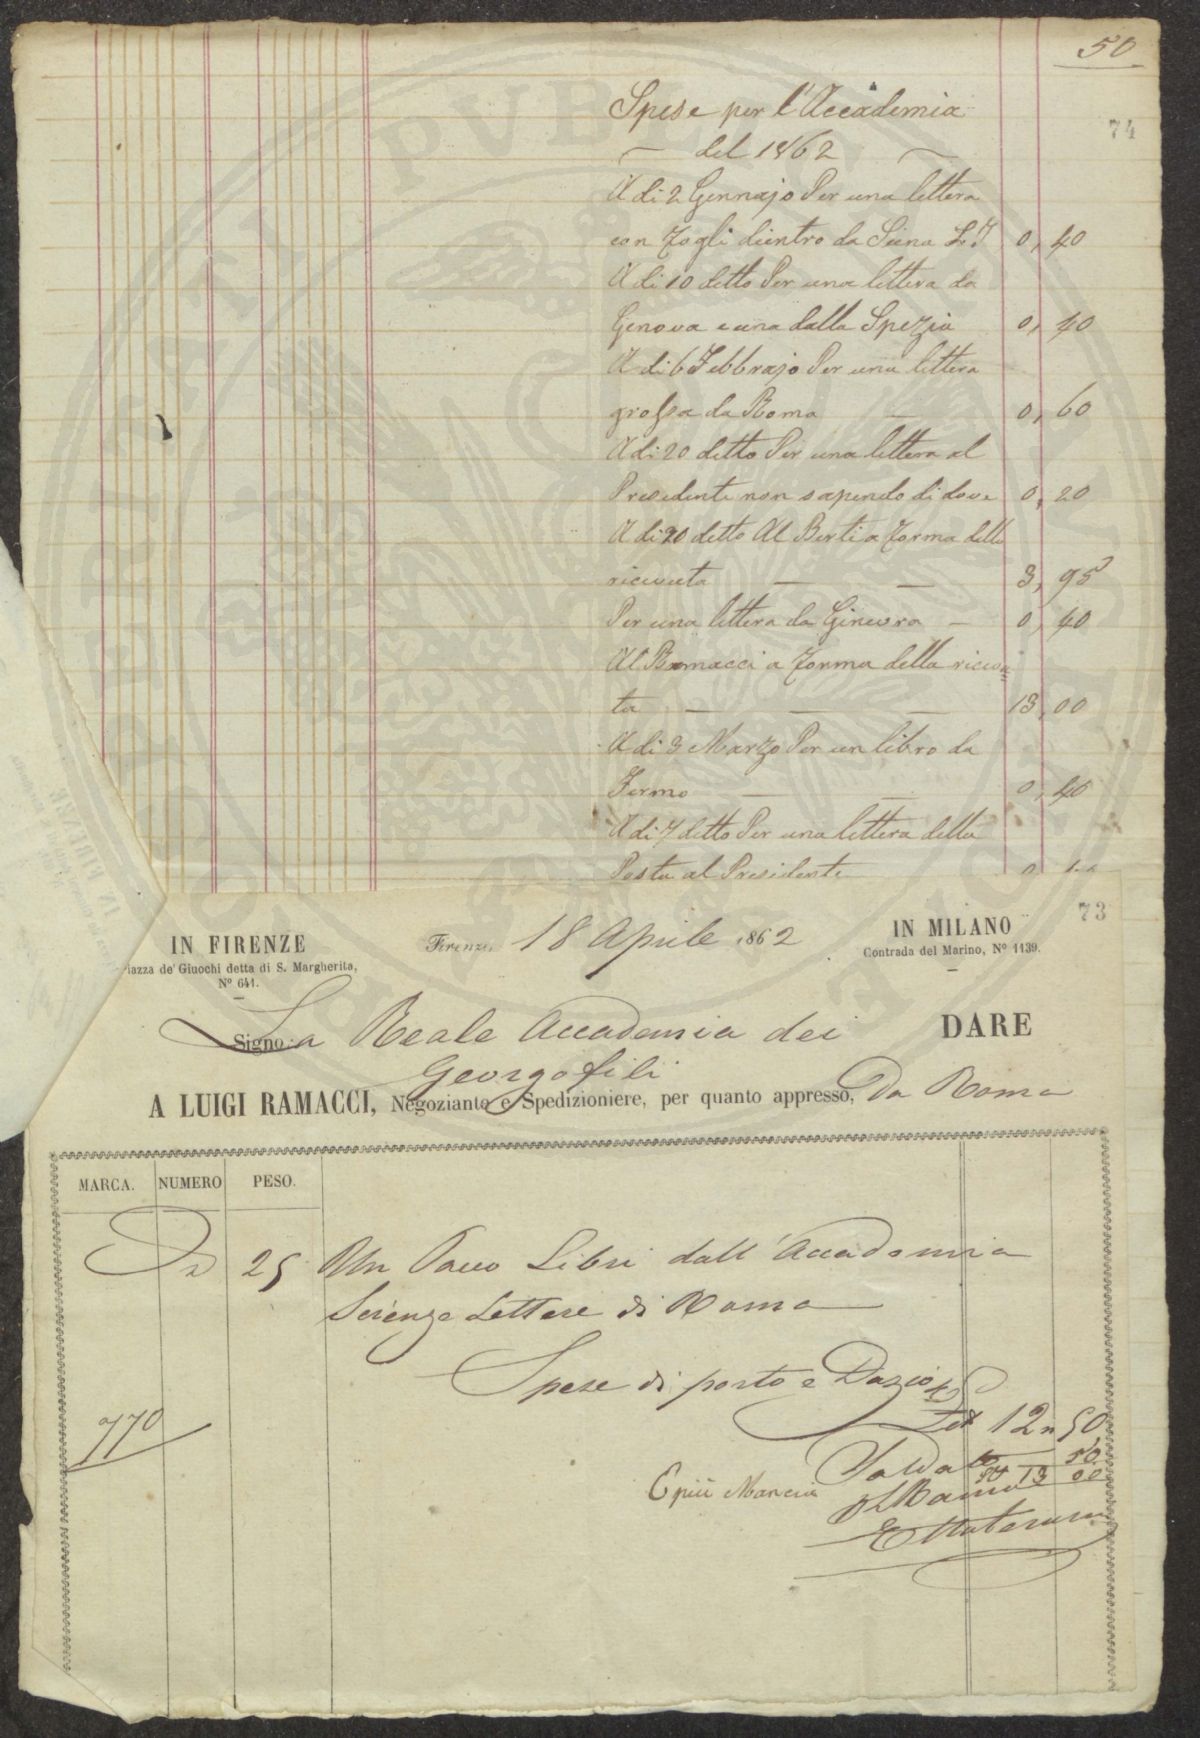 50
74
Spese per l'Accademia
del 1862
A di 2 Gennajo Per una lettera
con fogli dientro da Siena 0, 40
A di 10 detto Per una lettera da
Genova e una dalla Spezia 0, 40
A di 6 Febbrajo Per una lettera
grossa da Roma — 0, 60
A di 20 detto Per una lettera al
Presidente non sapendo di dove 0, 20
A di 20 detto Al Berti a forma della
ricevuta — — 3, 95
Per una lettera da Ginevra — 0, 40
Al Ramacci a forma della ricevu=
ta — — — 13, 00
A di 3 Marzo Per un libro da
Fermo — — 0, 40
A di 7 detto Per una lettera della
Posta al Presidente
73
IN FIRENZE
Piazza de' Giuochi detta di S. Margherita,
Nº 641.
Firenze, 18 Aprile 1862
IN MILANO
Contrada del Marino, Nº 1139.
Signo La Reale Accademia dei
Georgofili
DARE
A LUIGI RAMACCI, Negoziante e Spedizioniere, per quanto appresso, Da Roma
MARCA. NUMERO PESO.
25 Un Pacco Libri dall'Accademia
Scienze Lettere di Roma
Spese di porto e Dazio
12 " 50
770
Saldato
E più Mancia 50
13 00